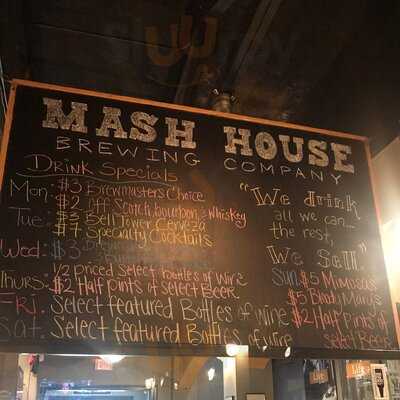 MASH HOUSE
BREWING COMPANY
Drink Specials
Mon: $3 Brewmasters Choice
$2 off Scotch, bourbon, & whiskey
Tue: $3 Bell Tower Cerveza
$7 Specialty Cocktails
Wed: $3
Thurs: 1/2 Priced Select bottles of wine
$2 Half pints of Select Beer
Fri. Select featured Bottles of wine
Sat. Select featured Bottles of wine
"We drink
all we can...
the rest,
We Sell."
Sun. $5 Mimosas
$5 Bloody Mary's
$2 Half Pints of
Select Beer